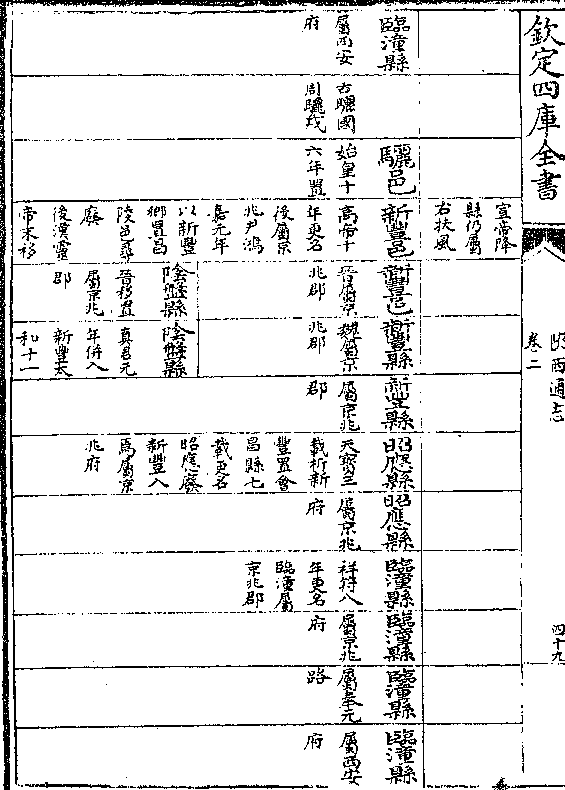 欽定四庫全書
陜西通志
卷二
四十九
宣帝降
縣仍屬
右扶風
臨潼縣
屬西安
府
古驪國
周驪戎
驪邑
始皇十
六年置
新豐邑
高帝十
年更名
後屬京
兆尹鴻
嘉元年
以新豐
鄉置昌
陵邑尋
廢
後漢靈
帝末移
新豐邑
晉屬京
兆郡
陰盤縣
晉移置
屬京兆
郡
新豐縣
魏屬京
兆郡
陰盤縣
真君元
年併入
新豐太
和十一
新豐縣
屬京兆
郡
昭應縣
天寶三
載析新
豐置會
昌縣七
載更名
昭應廢
新豐入
焉屬京
兆府
昭應縣
屬京兆
府
臨潼縣
祥符八
年更名
臨潼屬
京兆郡
臨潼縣
屬京兆
府
臨潼縣
屬奉元
路
臨潼縣
屬西安
府